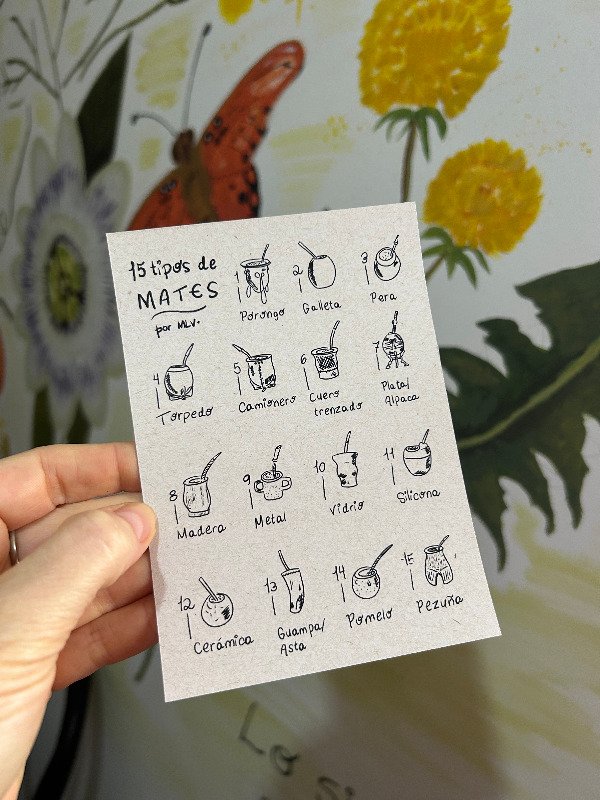 15 tipos de
MATES
por MLV.
1 Porongo
2 Galleta
3 Pera
4 Torpedo
5 Camionero
6 Cuero
trenzado
7 Plata/
Alpaca
8 Madera
9 Metal
10 Vidrio
11 Silicona
12 Cerámica
13 Guampa/
Asta
14 Pomelo
15 Pezuña
Lo si